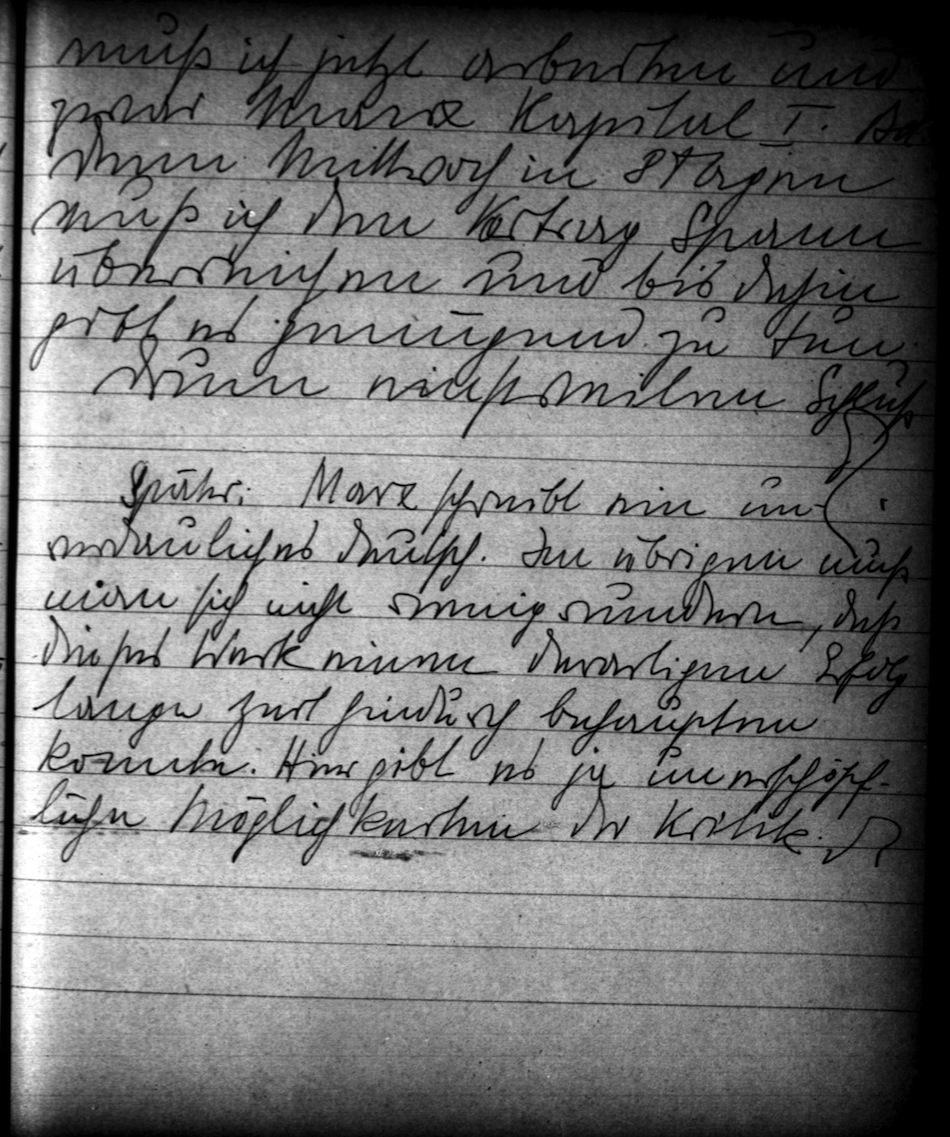 muß ich jetzt arbeiten und
zwar Marx Kapital I. Bd.
denn Mittwoch in 8 Tagen
muß ich den Vortrag Spann
überreichen und bis dahin
gibt es genügend zu tun.
Drum nichtsweilen Schluß
Später: Marx schreibt ein un-
verdauliches Deutsch. Im übrigen muß
man sich nicht wenig wundern, daß
dieses Werk einen derartigen Erfolg
lange Zeit hindurch behaupten
konnte. Hier gibt es ja unerschöpf-
liche Möglichkeiten der Kritik.